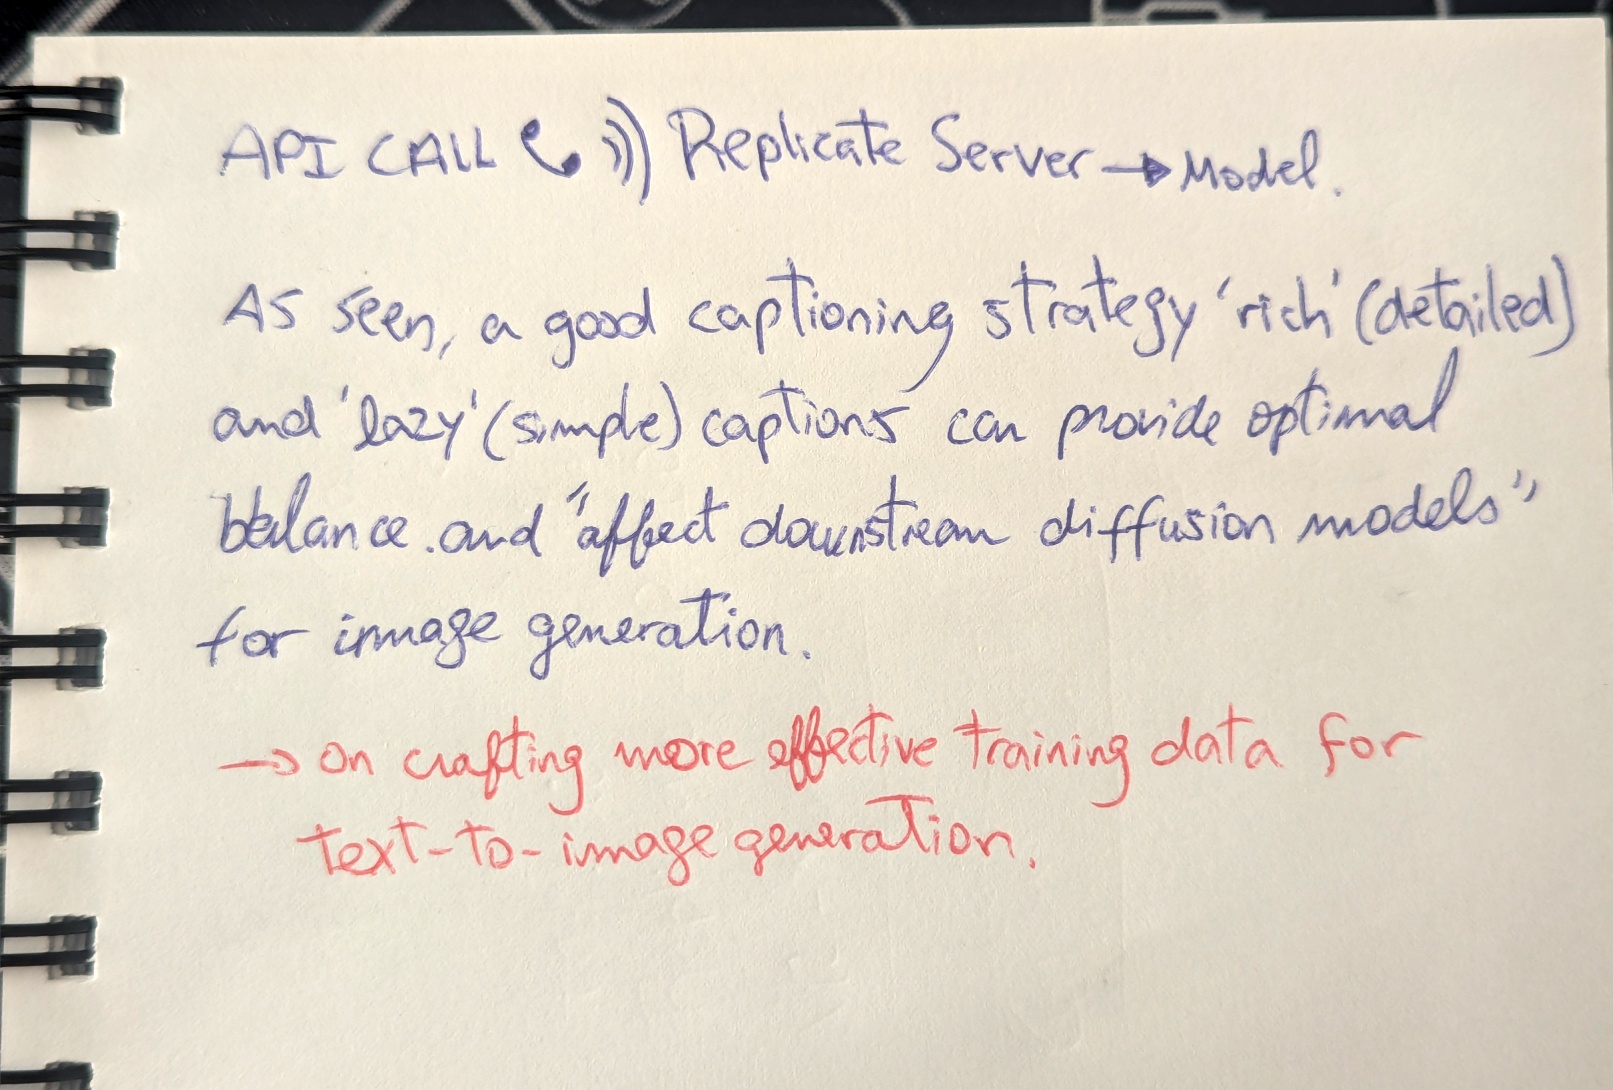 API CALL Replicate Server → Model.
As seen, a good captioning strategy 'rich' (detailed)
and 'lazy' (simple) captions can provide optimal
balance. and "affect downstream diffusion models"
for image generation.
→ on crafting more effective training data for
text-to-image generation.